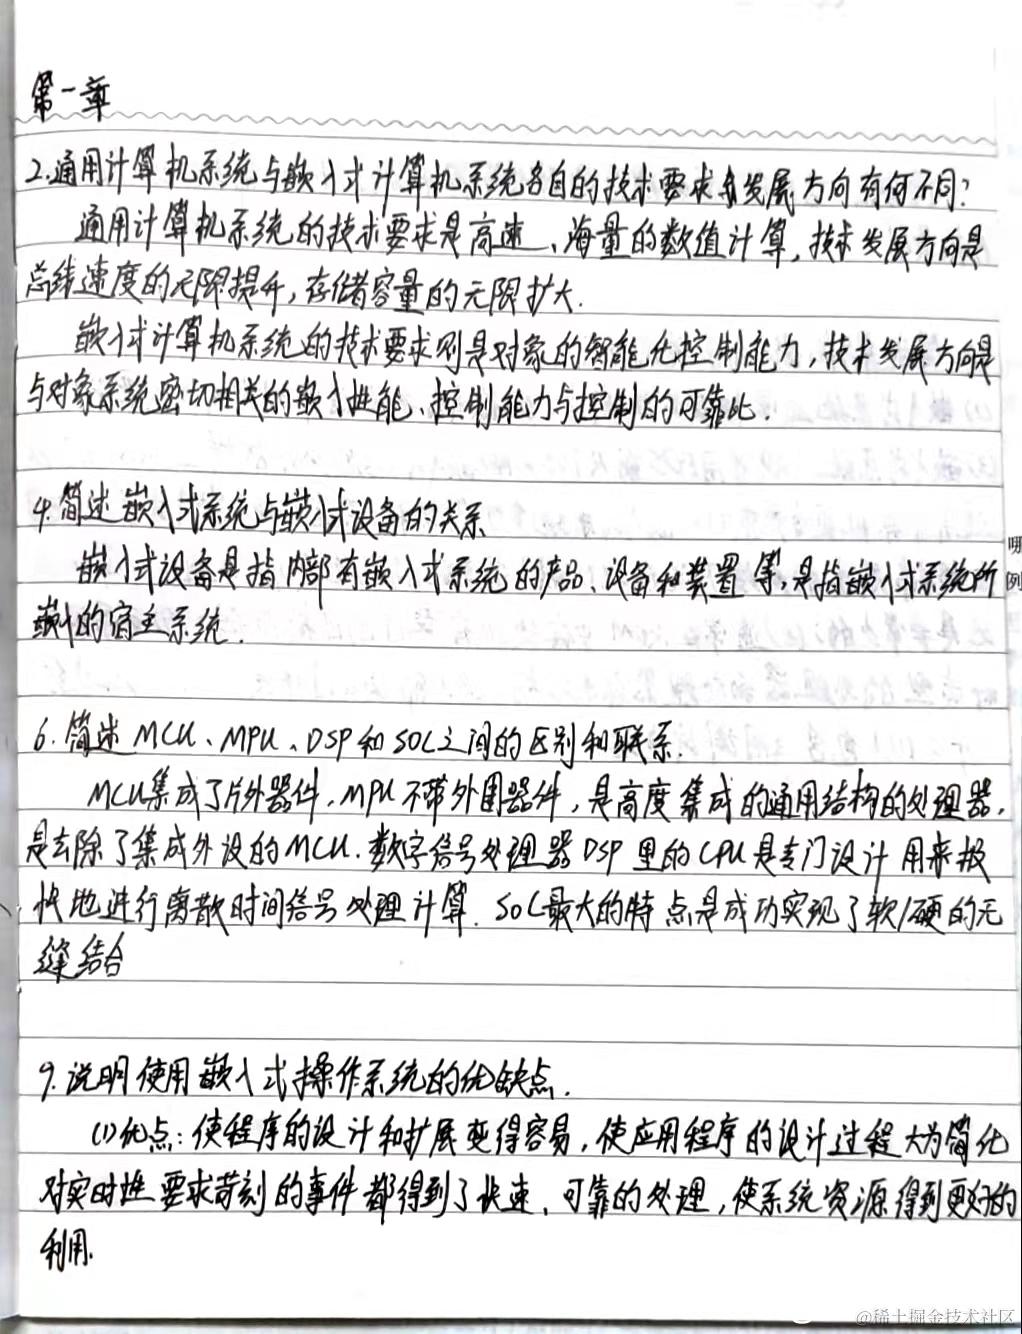 第一章
2.通用计算机系统与嵌入式计算机系统各自的技术要求和发展方向有何不同?
通用计算机系统的技术要求是高速、海量的数值计算,技术发展方向是
总线速度的无限提升,存储容量的无限扩大.
嵌入式计算机系统的技术要求则是对象的智能化控制能力,技术发展方向是
与对象系统密切相关的嵌入性能、控制能力与控制的可靠性.
4.简述嵌入式系统与嵌入式设备的关系
嵌入式设备是指内部有嵌入式系统的产品、设备和装置等,是指嵌入式系统所
嵌入的宿主系统.
6.简述MCU、MPU、DSP和SOC之间的区别和联系.
MCU集成了片外器件,MPU不带外围器件,是高度集成的通用结构的处理器,
是去除了集成外设的MCU.数字信号处理器DSP里的CPU是专门设计用来极
快地进行离散时间信号处理计算.SOC最大的特点是成功实现了软/硬的无
缝结合
9.说明使用嵌入式操作系统的优缺点.
(1)优点:使程序的设计和扩展变得容易,使应用程序的设计过程大为简化
对实时性要求苛刻的事件都得到了快速、可靠的处理,使系统资源得到更好的
利用.
哪
例
@稀土掘金技术社区